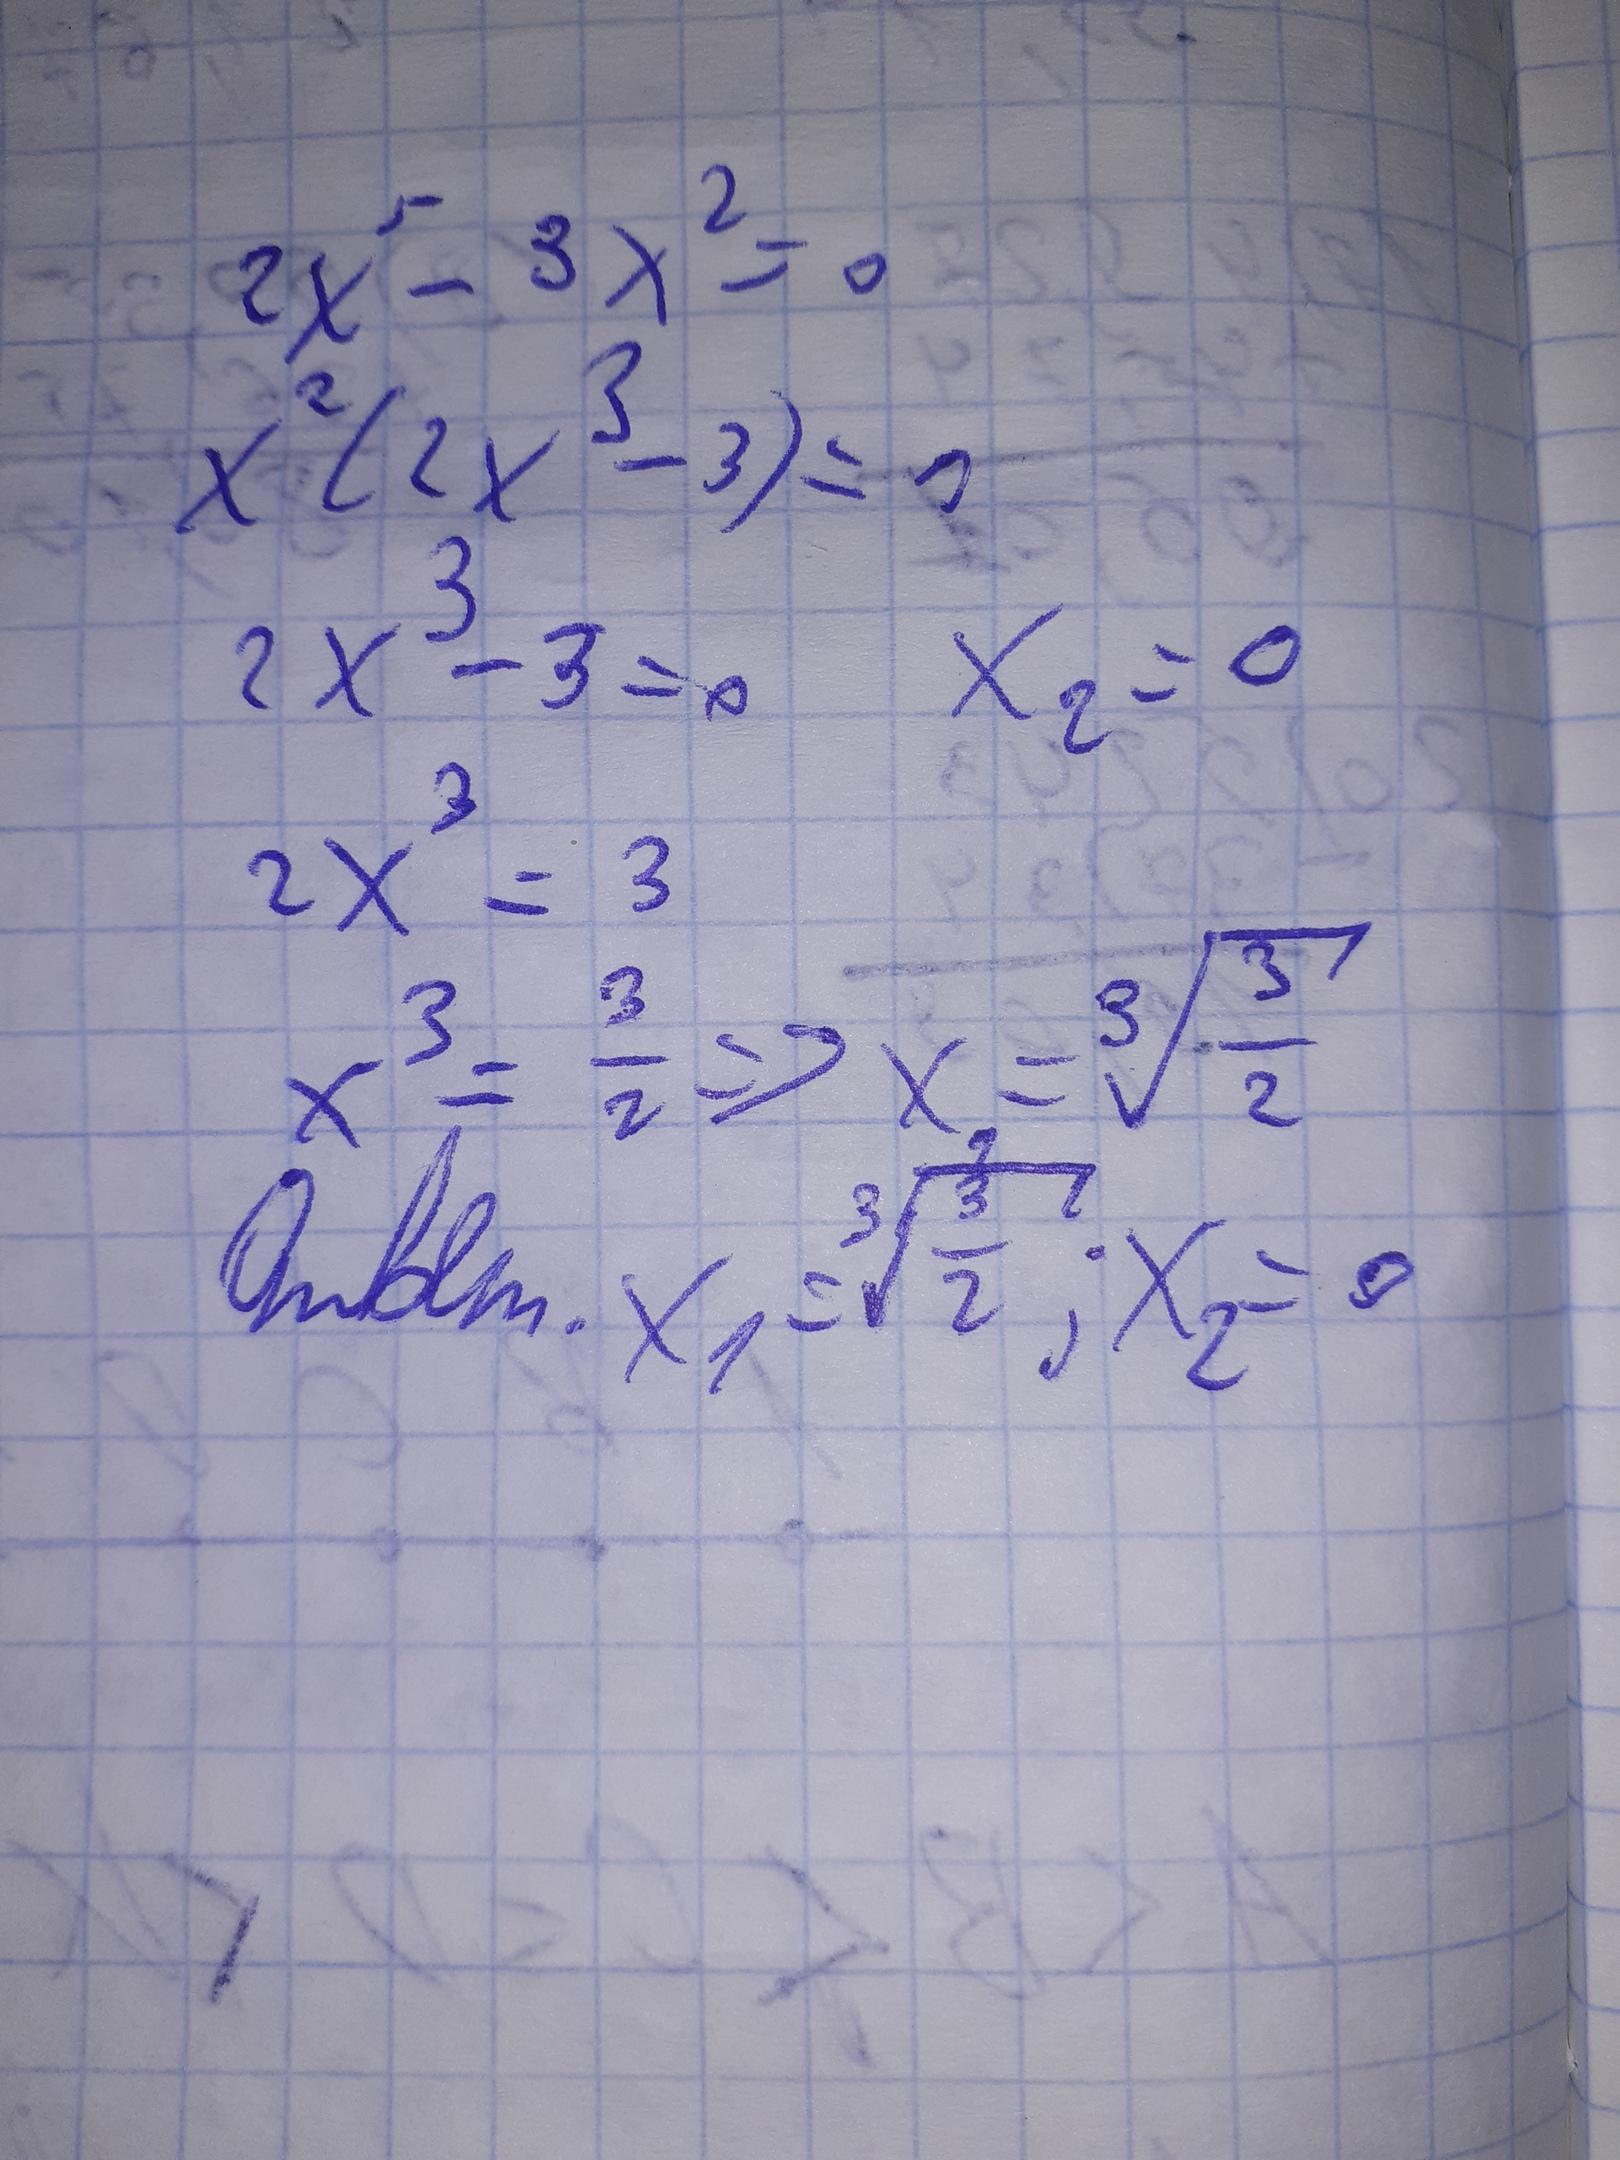 2x⁵ - 3x² = 0
x²(2x³ - 3) = 0
2x³ - 3 = 0 x₂ = 0
2x³ = 3
x³ = 3/2 => x = ³√(3/2)
Ответ. x₁ = ³√(3/2) ; x₂ = 0